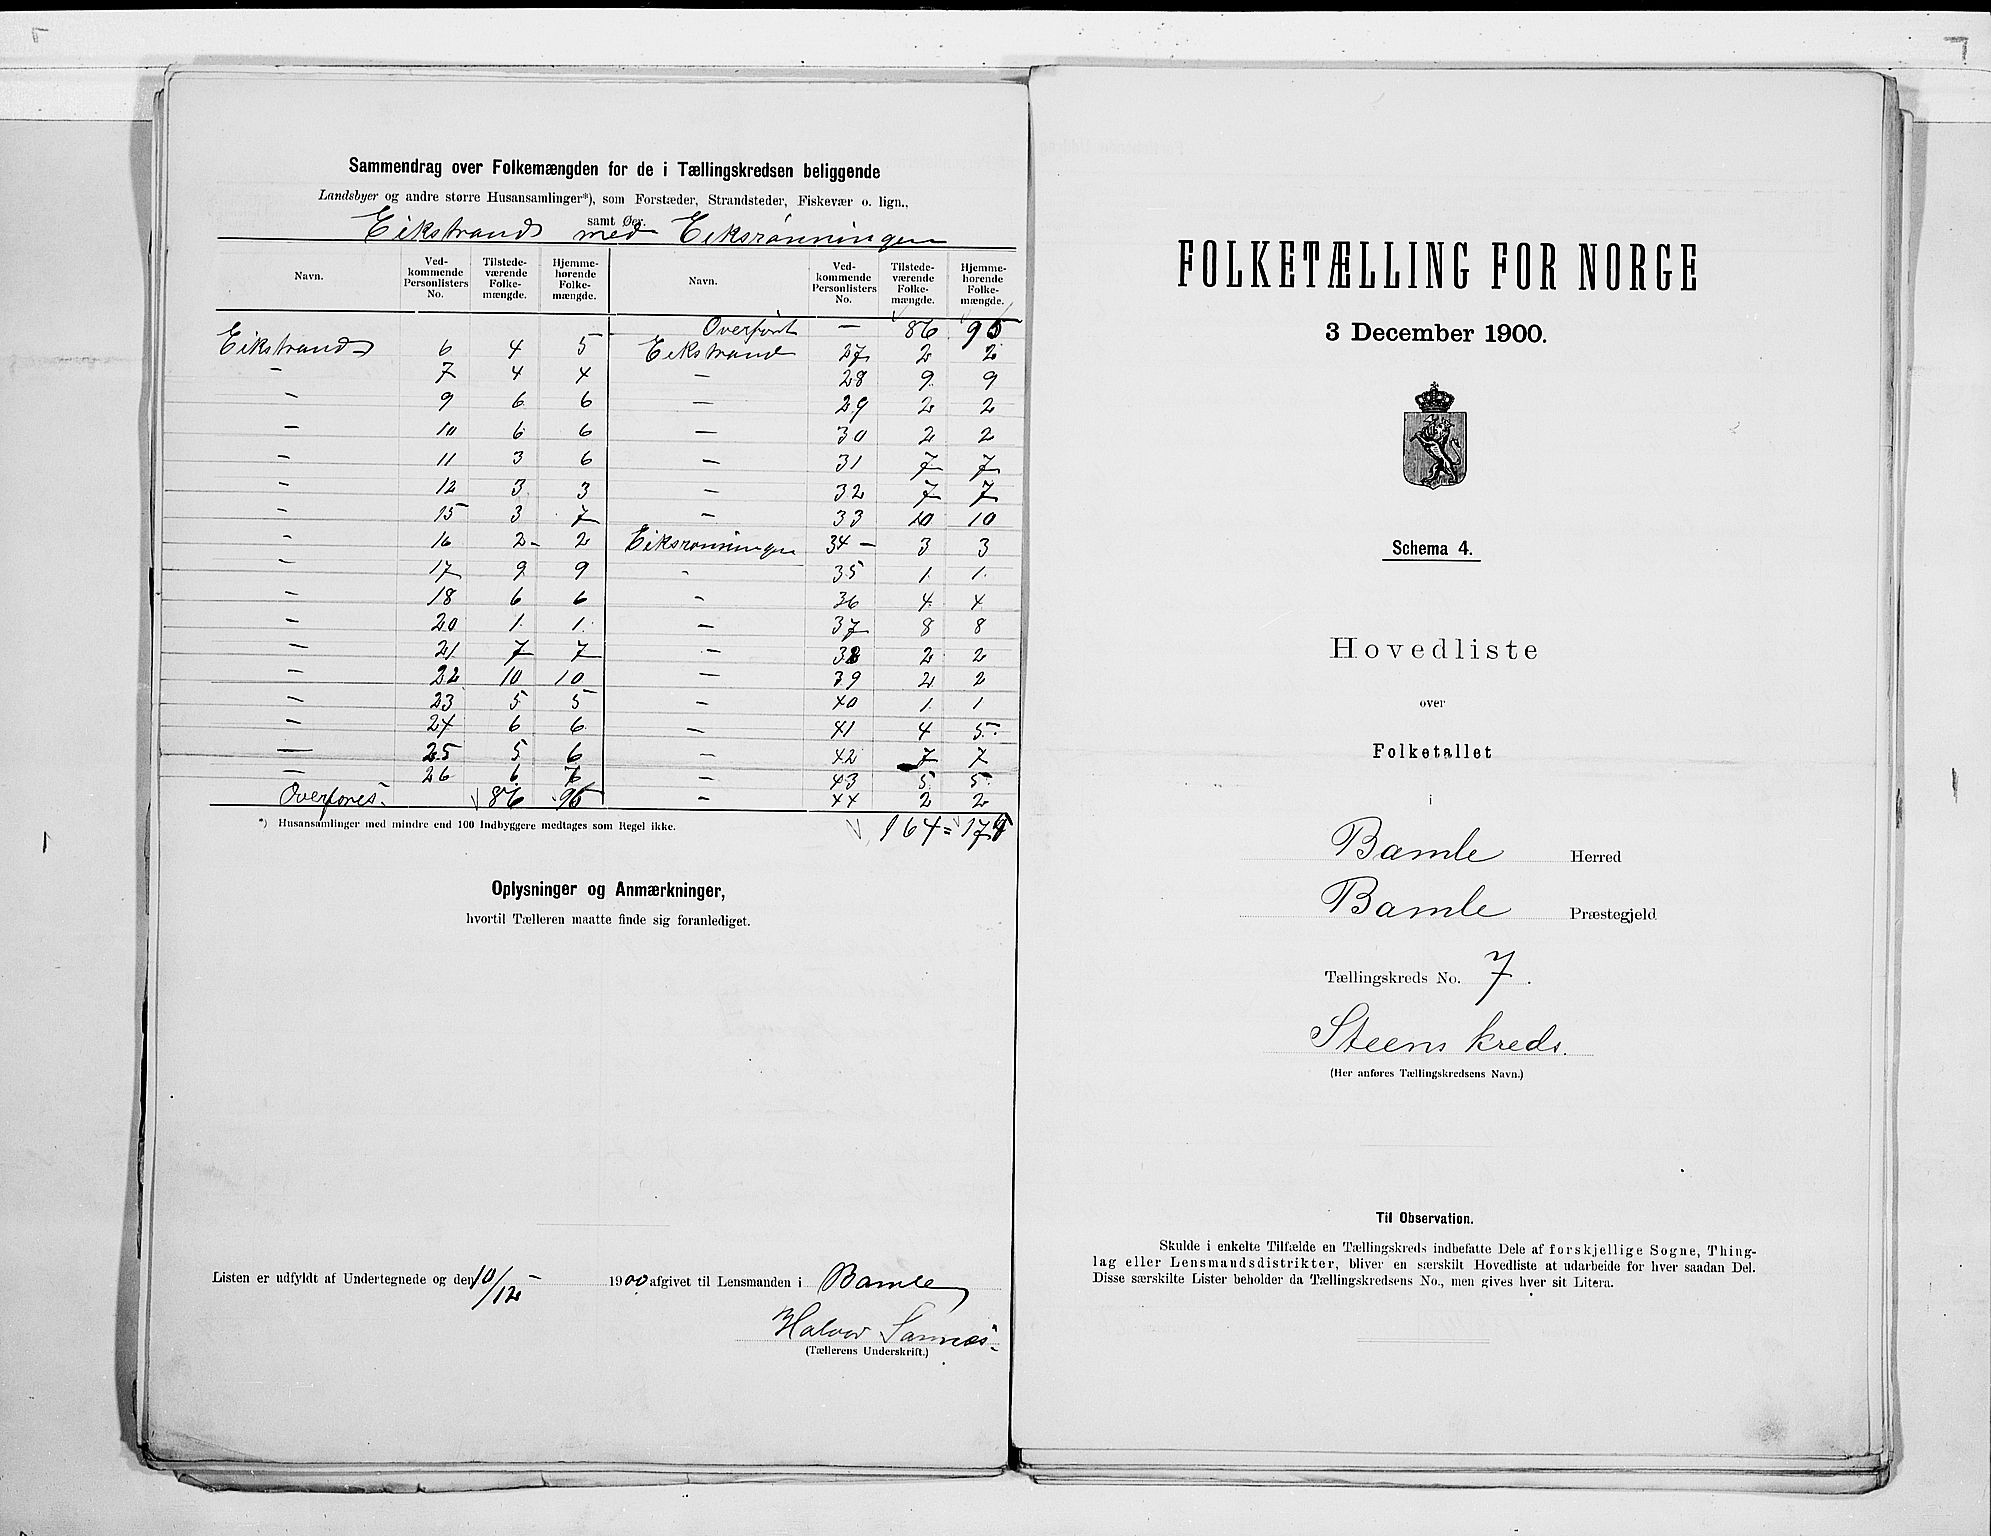 Sammendrag over Folkemængden for de i Tællingskredsen beliggende
Landsbyer og andre større Husansamlinger*), som Forstæder, Strandsteder, Fiskevær o. lign.,
samt Øer.
Eikstrand med Eiksrønningen
Navn. Ved-kommende Personlisters No. Tilstede-værende Folke-mængde. Hjemme-hørende Folke-mængde. Navn. Ved-kommende Personlisters No. Tilstede-værende Folke-mængde. Hjemme-hørende Folke-mængde.
Overført — 86 95
Eikstrand 6 4 5 Eikstrand 27 2 2
" 7 4 4 — 28 9 9
— 9 6 6 — 29 2 2
— 10 6 6 — 30 2 2
— 11 3 6 — 31 7 7
— 12 3 3 — 32 7 7
— 15 3 7 — 33 10 10
— 16 2 2 Eiksrønningen 34 — 3 3
— 17 9 9 — 35 1 1
— 18 6 6 — 36 4 4
— 20 1 1 — 37 8 8
— 21 7 7 — 38 2 2
— 22 10 10 — 39 2 2
— 23 5 5 — 40 1 1
— 24 6 6 — 41 4 5
— 25 5 6 — 42 7 7
— 26 6 — 43 5 5
Overføres 86 95 — 44 2 2
*) Husansamlinger med mindre end 100 Indbyggere medtages som Regel ikke.
164 =
Oplysninger og Anmærkninger,
hvortil Tælleren maatte finde sig foranlediget.
Listen er udfyldt af Undertegnede og den 10/12 1900 afgivet til Lensmanden i Bamle
Halvor Sannes
(Tællerens Underskrift.)
FOLKETÆLLING FOR NORGE
3 December 1900.
Schema 4.
Hovedliste
over
Folketallet
i
Bamle Herred
Bamle Præstegjeld
Tællingskreds No. 7.
Steens kreds.
(Her anføres Tællingskredsens Navn.)
Til Observation.
Skulde i enkelte Tilfælde en Tællingskreds indbefatte Dele af forskjellige Sogne, Thing-
lag eller Lensmandsdistrikter, bliver en særskilt Hovedliste at udarbeide for hver saadan Del.
Disse særskilte Lister beholder da Tællingskredsens No., men gives hver sit Litera.